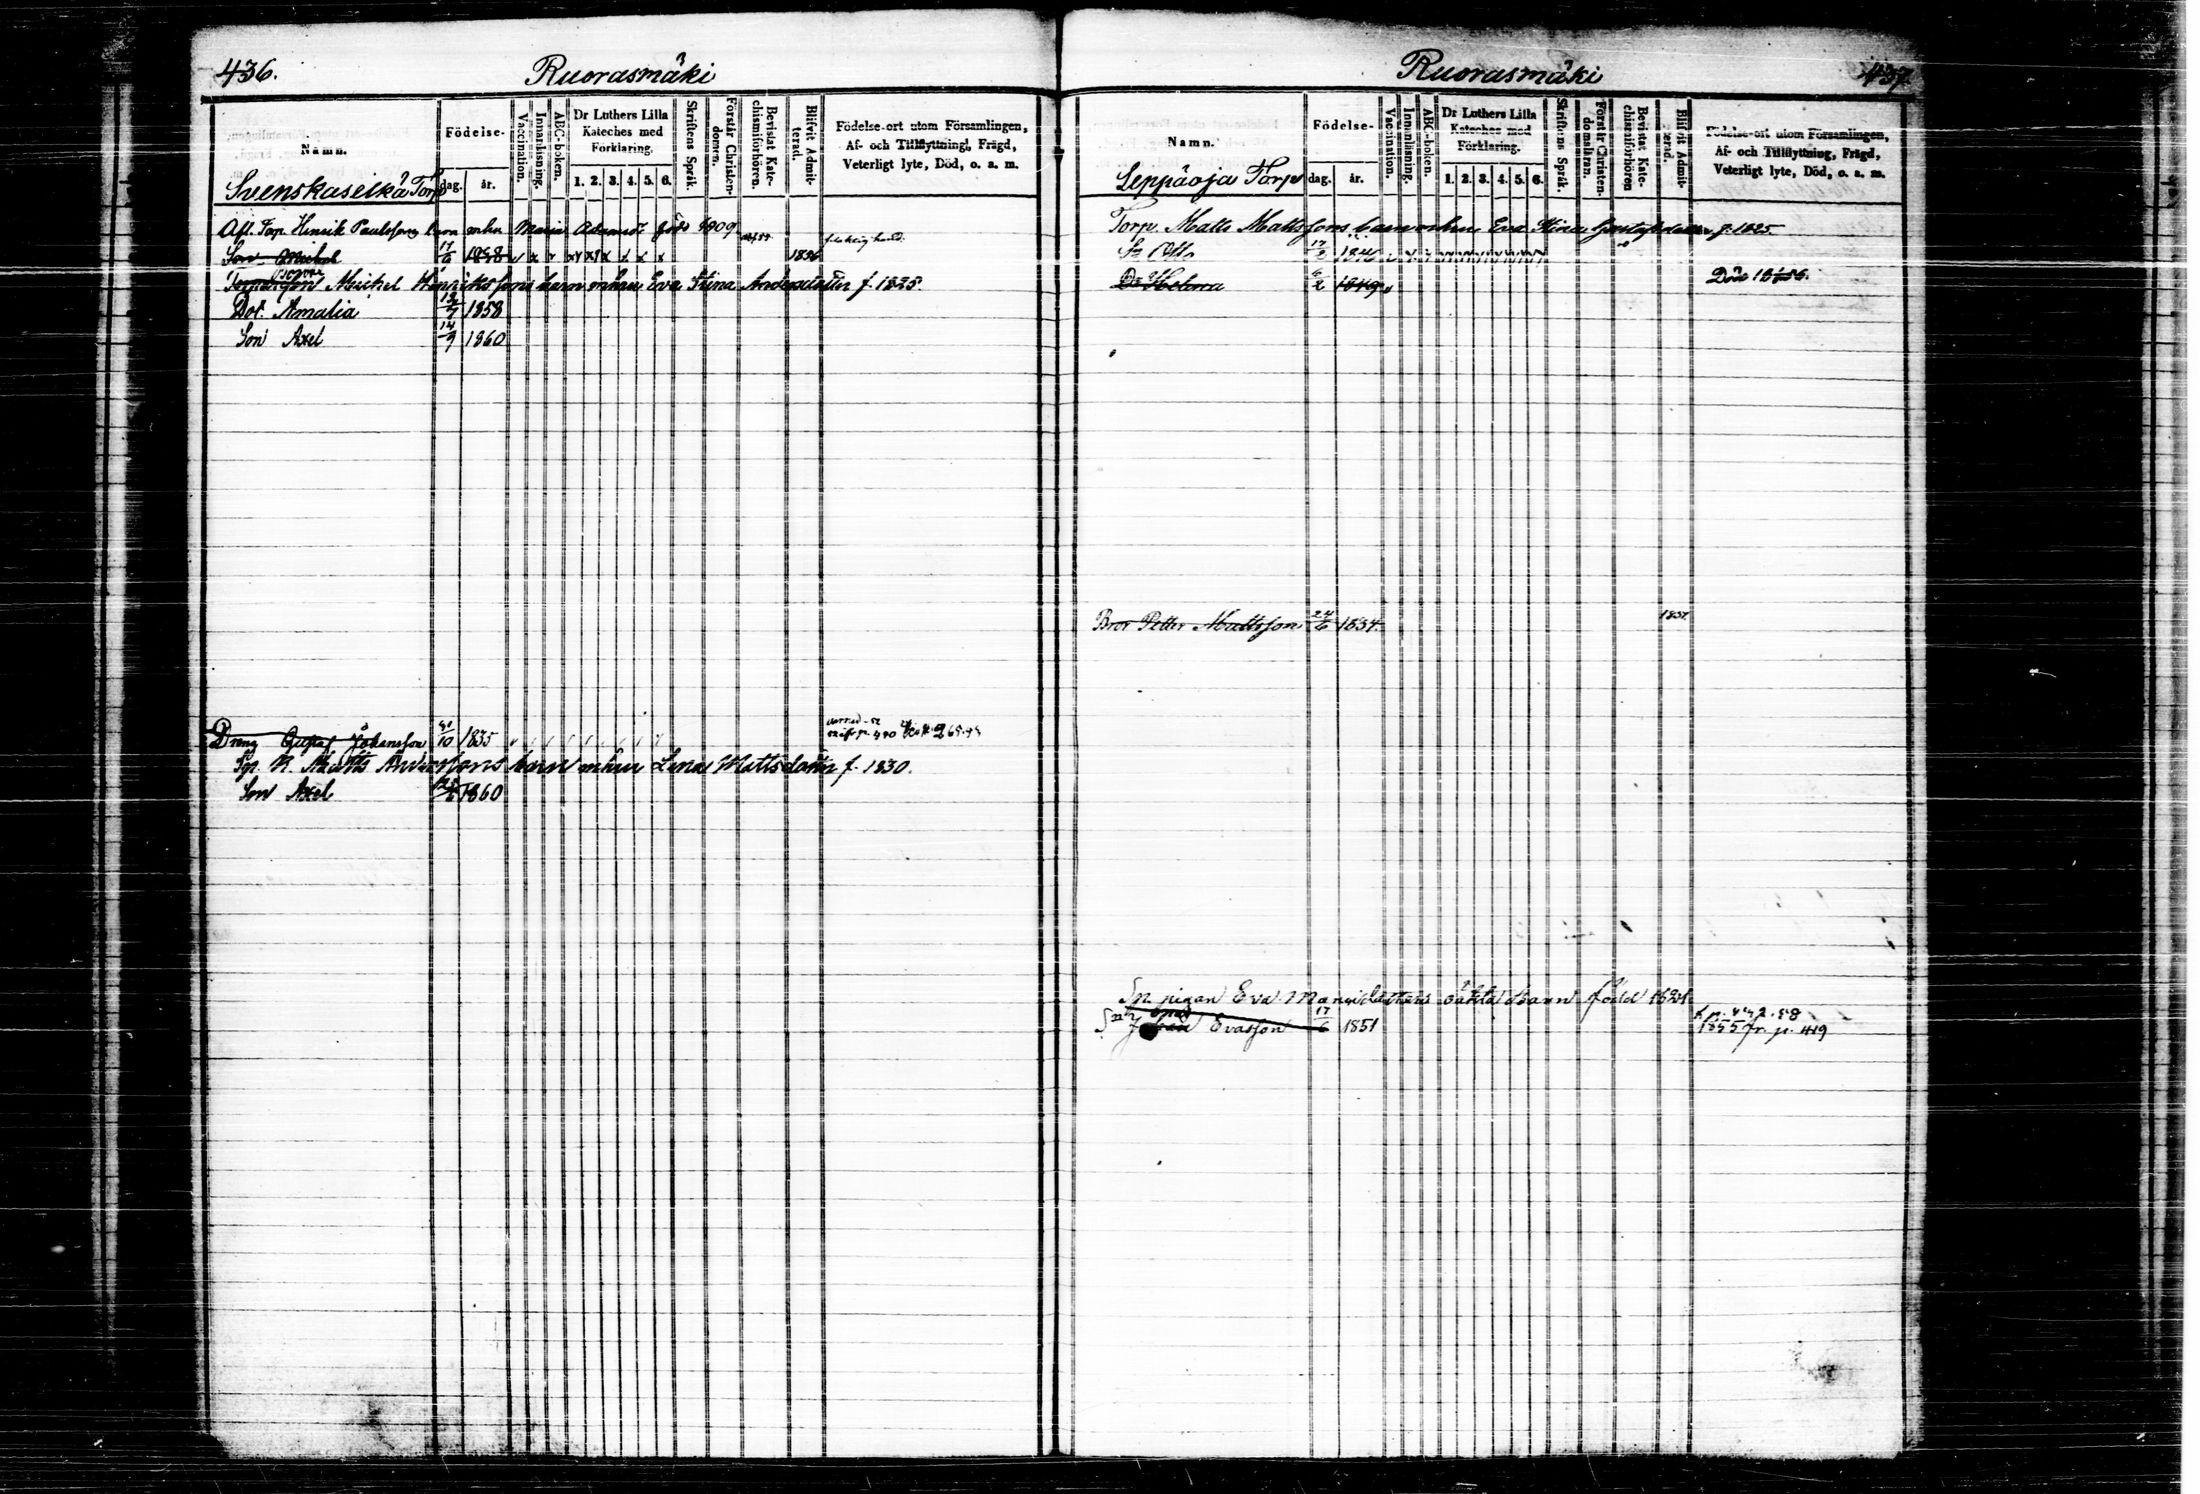 436.
Ruorasmäki
Namn.
Födelse-
dag.
år.
Vaccination.
Innanläsning.
ABC-boken.
Dr Luthers Lilla
Kateches med
Förklaring.
1. 2. 3. 4. 5. 6.
Skriftens Språk.
Förstår Christen-
domen.
Bevistat Kate-
chismiförhören.
Blifvit Admit-
terad.
Födelse-ort utom Församlingen,
Af- och Tillflyttningl, Frägd,
Veterligt lyte, Död, o. a. m.
Svenskaselkä Torp
Afl. Torp. Henrik Paulssons barn mhu Maria Adamsd. född 1809
Son Michel 17/6 1838 1856
Michel Henrikssons barn m hu Eva Stina Andersdotter f. 1835.
Dot. Amalia 13/7 1858
Son Axel 14/9 1860
Dreng Gustaf Johansson 31/10 1835
Matts Anderssons barn mhu Lena Mattsdotter f. 1830.
Son Axel 1860
Ruorasmäki
437.
Namn.
Födelse-
dag.
år.
Vaccination.
Innanläsning.
ABC-boken.
Dr Luthers Lilla
Kateches med
Förklaring.
1. 2. 3. 4. 5. 6.
Skriftens Språk.
Förstår Christen-
domsläran.
Bevistat Kate-
chismiförhören
Blifvit Admit-
terad.
Födelse-ort utom Församlingen,
Af- och Tillflyttning, Frägd,
Veterligt lyte, Död, o. a. m.
Leppäoja Torp
Torp. Matts Mattssons barn m hu Eva Stina Gustafsdotter f. 1825
Sn Otto 17/3 1846
Dr Helena 6/2 1849 Död
Bror Petter Mattsson 24/6 1834. 1851.
Sp. pigan Eva oäkta Barn född
Evasson 17/6 1851 1855 fr. p. 419